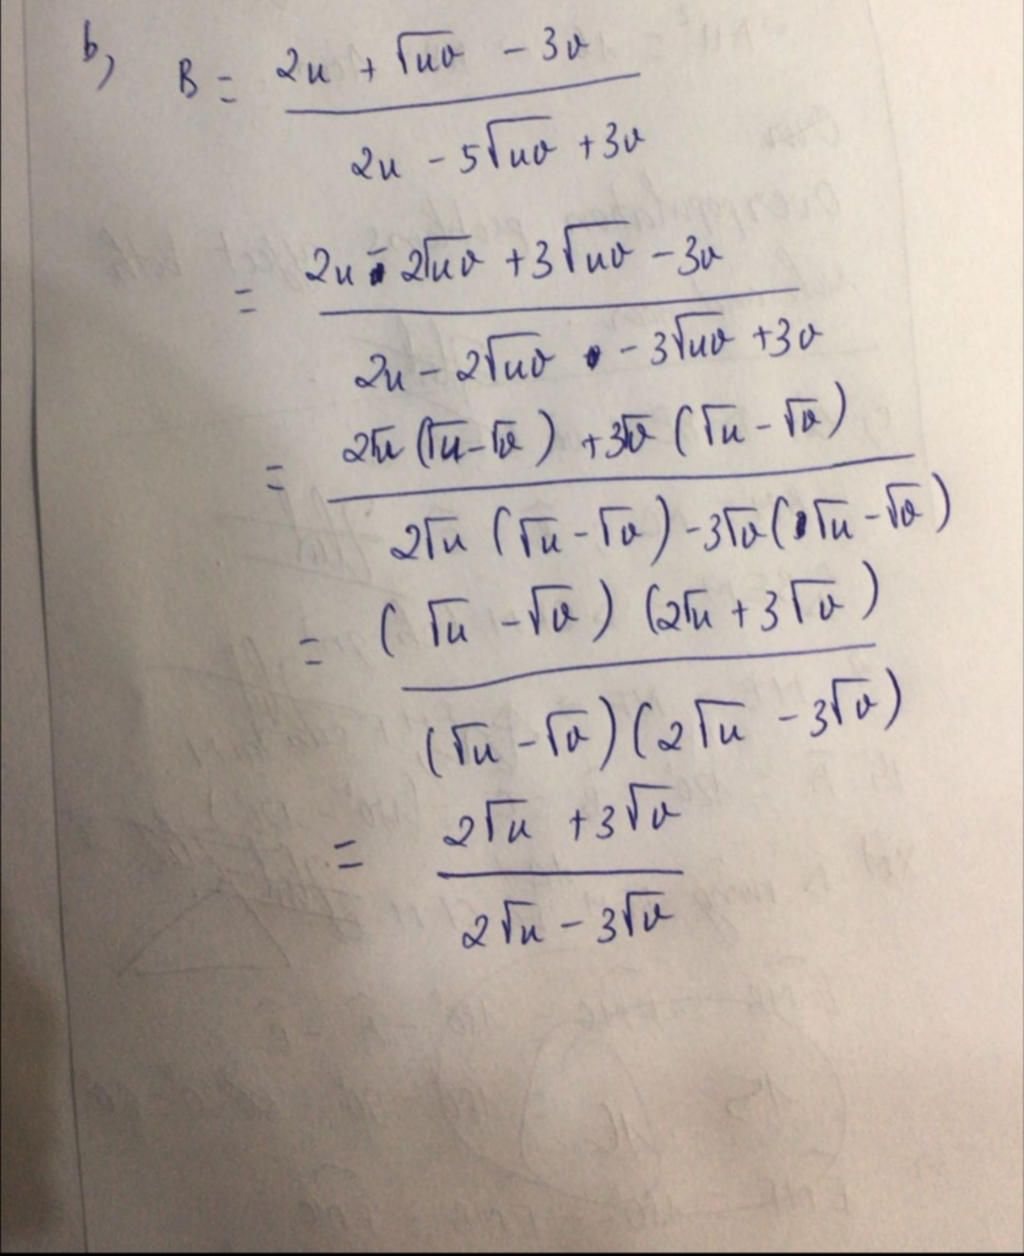 b, B = (2u + √uv - 3v) / (2u - 5√uv + 3v)
= (2u - 2√uv + 3√uv - 3v) / (2u - 2√uv - 3√uv + 3v)
= (2√u (√u - √v) + 3√v (√u - √v)) / (2√u (√u - √v) - 3√v (√u - √v))
= ((√u - √v) (2√u + 3√v)) / ((√u - √v) (2√u - 3√v))
= (2√u + 3√v) / (2√u - 3√v)